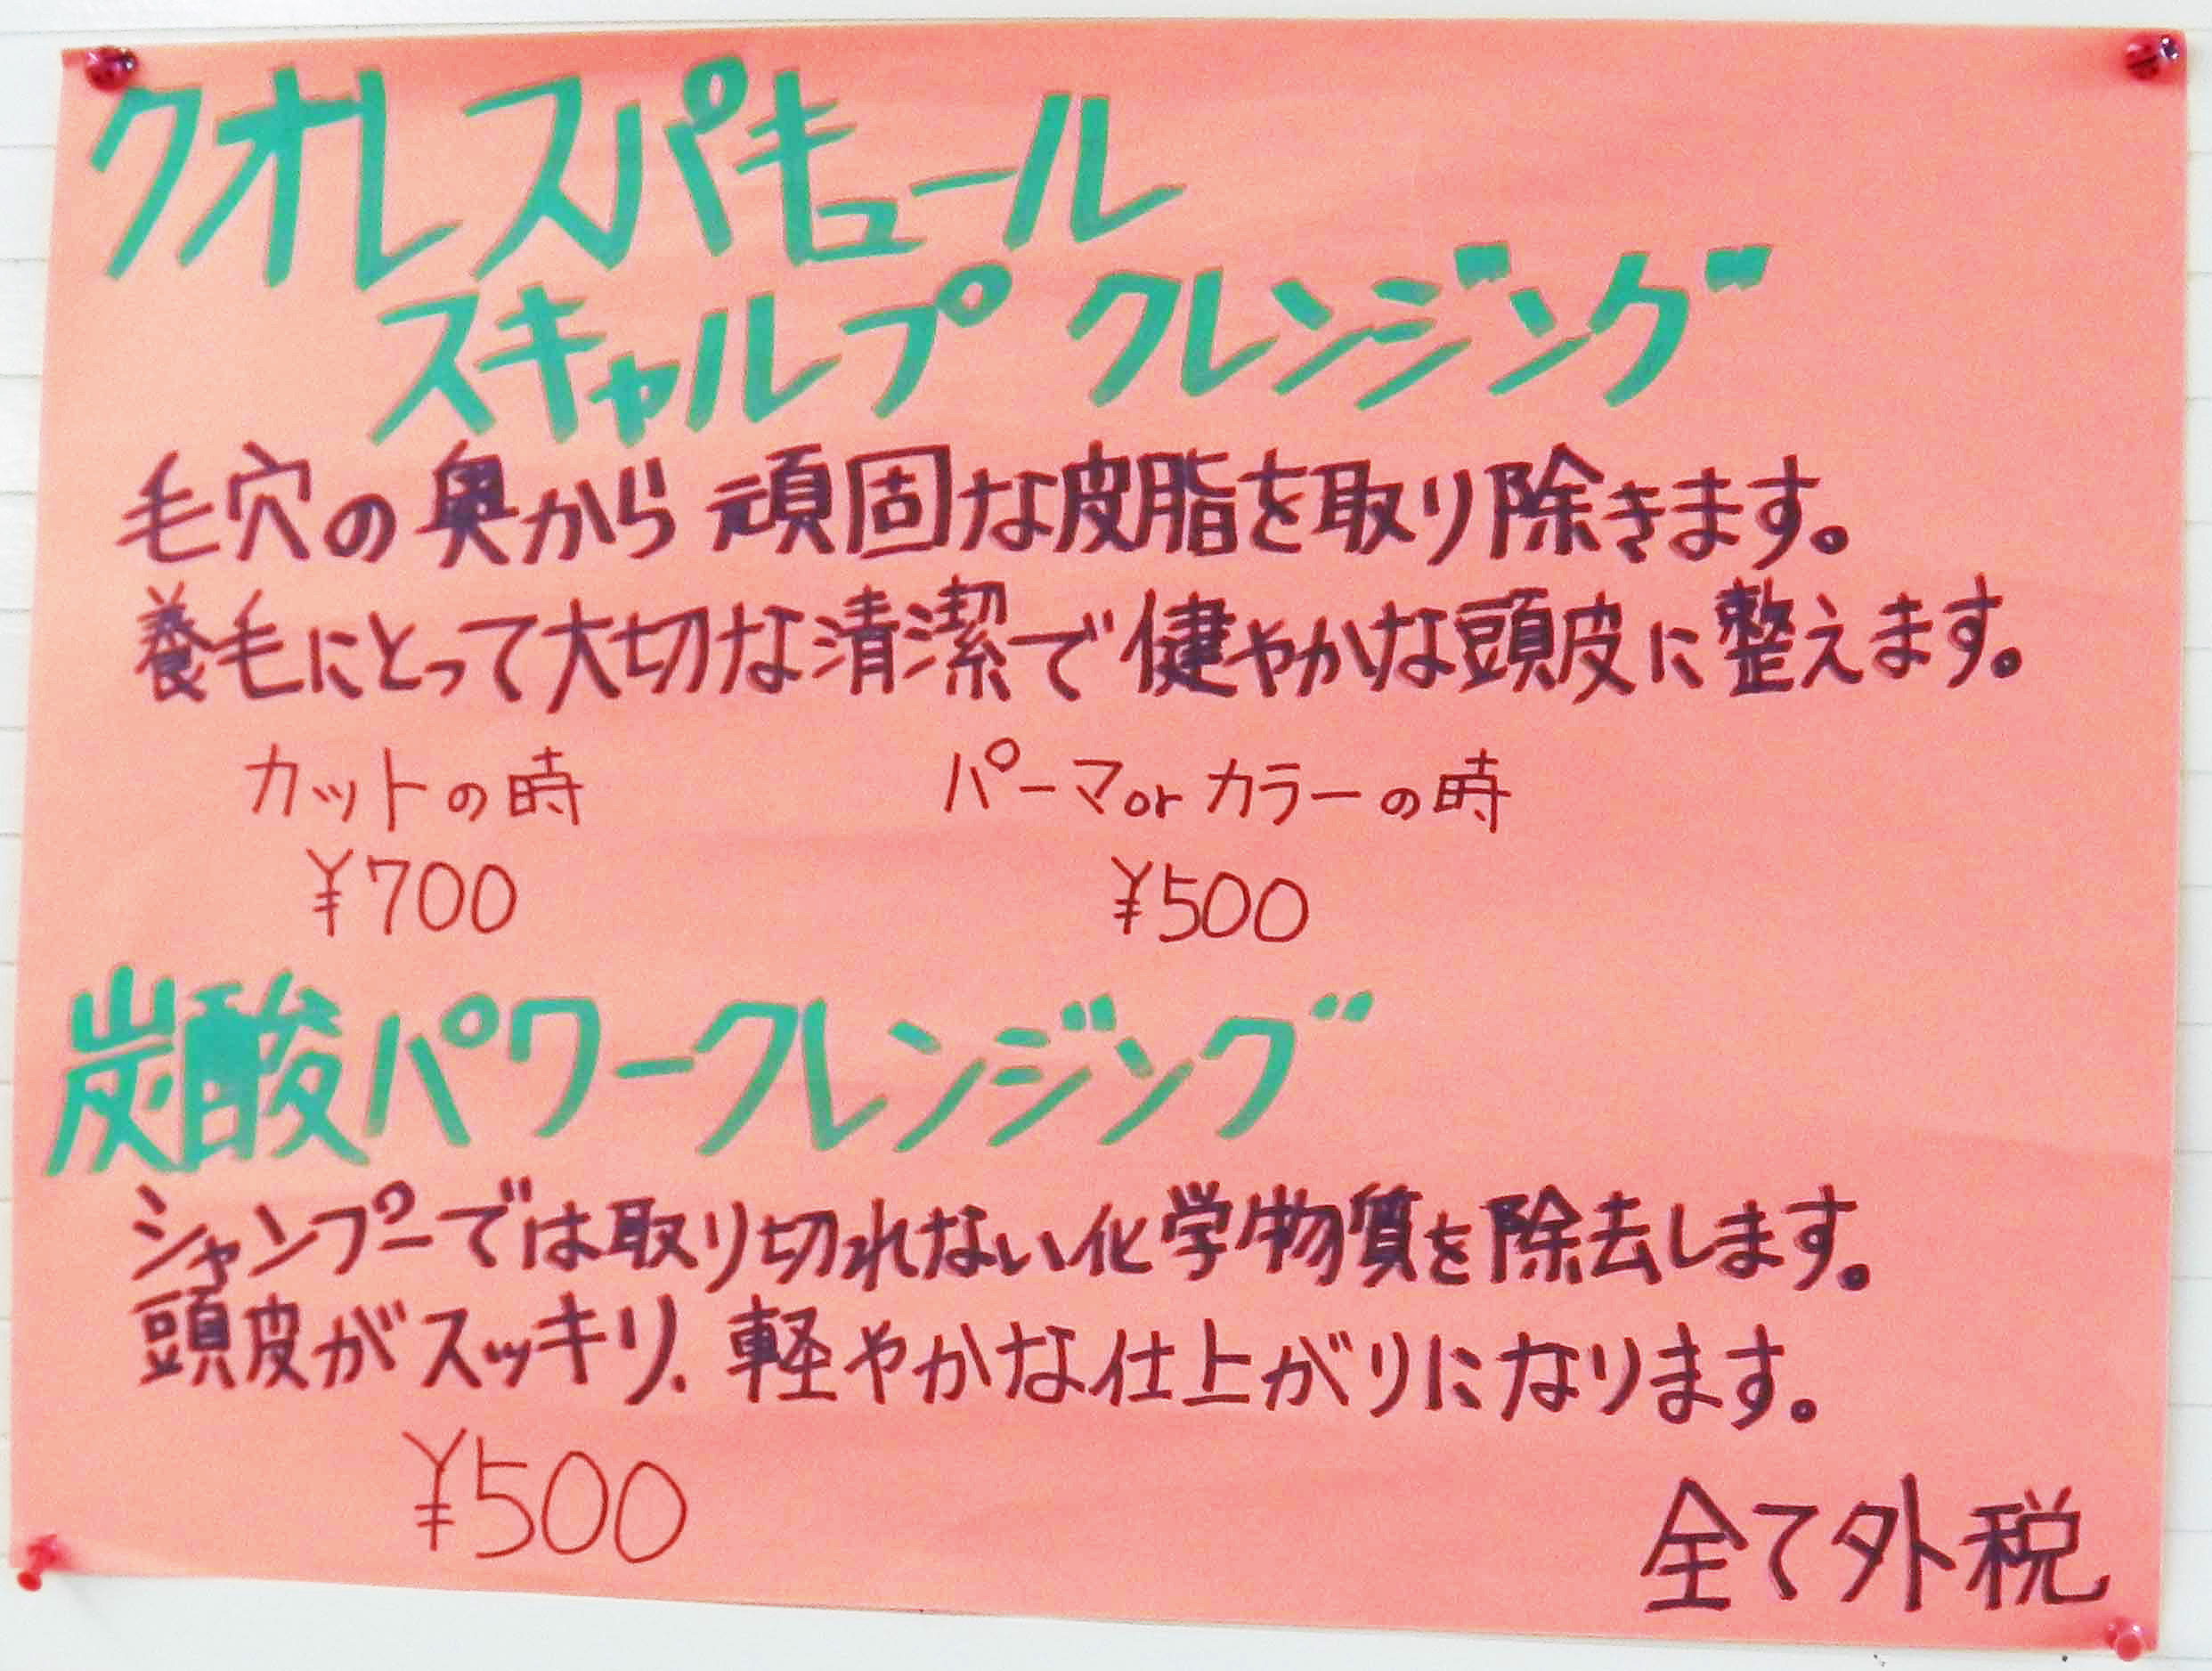 クオレスパキュール
スキャルプ クレンジング
毛穴の奥から頑固な皮脂を取り除きます。
養毛にとって大切な清潔で健やかな頭皮に整えます。
カットの時 パーマorカラーの時
¥700 ¥500
炭酸パワークレンジング
シャンプーでは取り切れない化学物質を除去します。
頭皮がスッキリ、軽やかな仕上がりになります。
¥500
全て外税